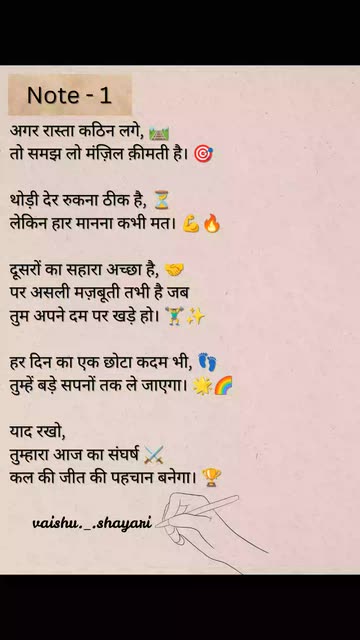 Note - 1
अगर रास्ता कठिन लगे, 🛤️
तो समझ लो मंज़िल क़ीमती है। 🎯
थोड़ी देर रुकना ठीक है, ⏳
लेकिन हार मानना कभी मत। 💪🔥
दूसरों का सहारा अच्छा है, 🤝
पर असली मज़बूती तभी है जब
तुम अपने दम पर खड़े हो। 🏋️✨
हर दिन का एक छोटा कदम भी, 👣
तुम्हें बड़े सपनों तक ले जाएगा। 🌟🌈
याद रखो,
तुम्हारा आज का संघर्ष ⚔️
कल की जीत की पहचान बनेगा। 🏆
vaishu._.shayari